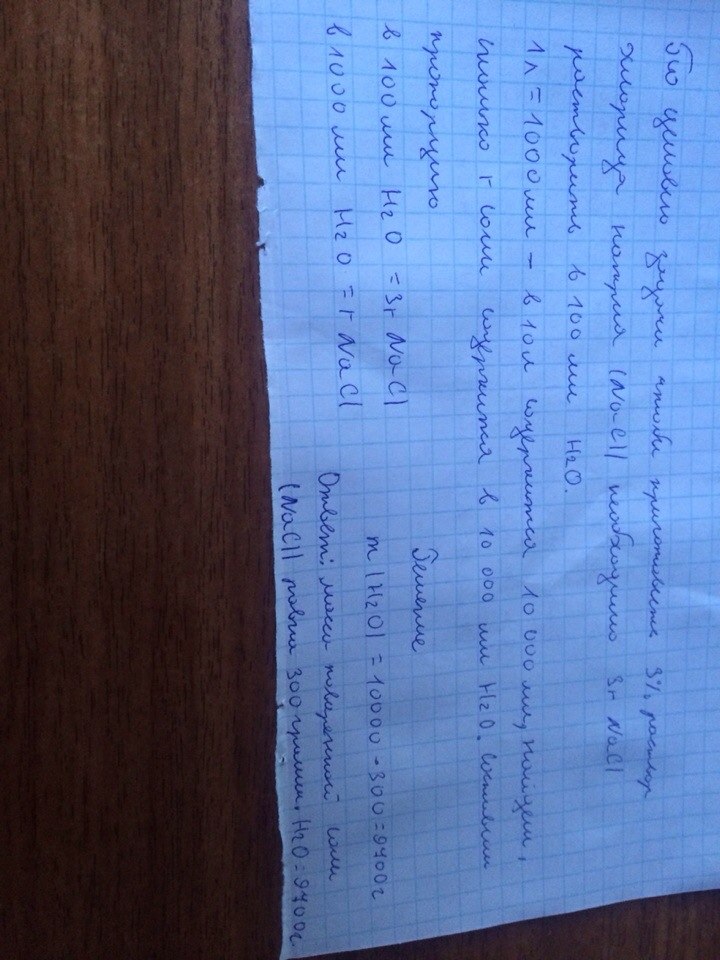 По условию задачи чтобы приготовить 3% раствор
хлорида натрия (NaCl) необходимо 3г NaCl
растворить в 100 мл H2O.
1л = 1000мл – в 10л содержится 10 000 мл, найдем,
сколько г соли содержится в 10 000 мл H2O. Составим
пропорцию
в 100 мл H2O = 3г NaCl
в 1000 мл H2O = г NaCl
Решение
m (H2O) = 10000 - 300 = 9700г
Ответ: масса поваренной соли
(NaCl) равна 300 грамм, H2O = 9700г.